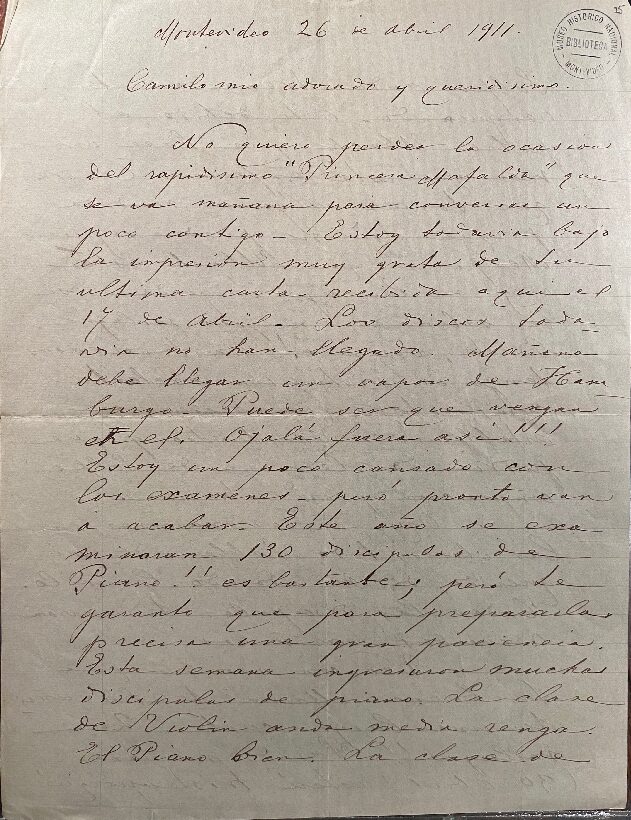 15
MUSEO HISTORICO NACIONAL
BIBLIOTECA
MONTEVIDEO
Montevideo 26 de Abril 1911.
Camilo mio adorado y queridisimo.
No quiero perder la ocasion
del rapidisimo "Princesa Mafalda" que
se va mañana para conversar un
poco contigo - Estoy todavia bajo
la impresion muy grata de tu
ultima carta recibida aqui el
17 de Abril - Los discos toda-
via no han llegado. Mañana
debe llegar un vapor de Ham
burgo - Puede ser que vengan
en el. Ojalá fuera asi!!!
Estoy un poco cansado con
los exámenes - peró pronto van
a acabar - Este año se exa
minaran 130 discipulas de
Piano!! es bastante; peró te
garanto que para prepararlas
precisa una gran paciencia.
Esta semana ingresaron muchas
discipulas de piano. La clase
de Violin anda media renga.
El Piano bien. La clase de